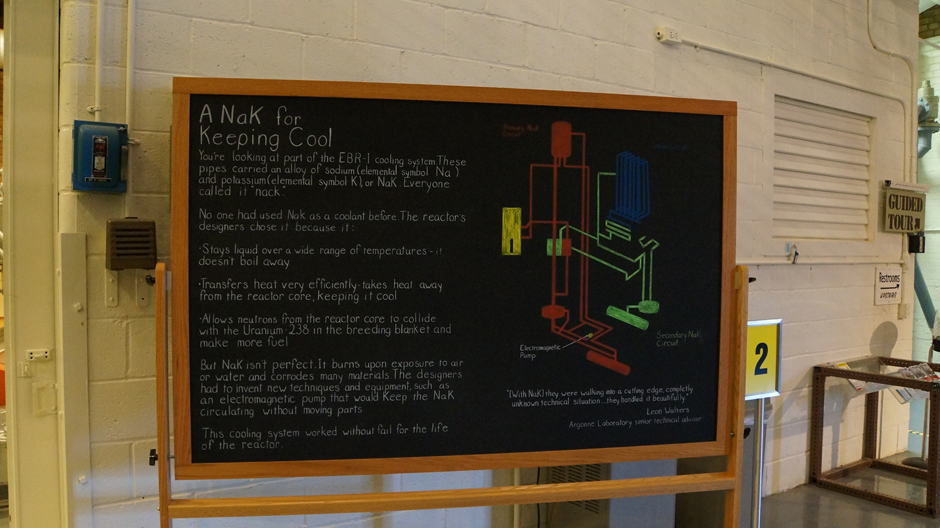 A NaK for
Keeping Cool
You're looking at part of the EBR-1 cooling system. These
pipes carried an alloy of sodium (elemental symbol Na)
and potassium (elemental symbol K), or NaK. Everyone
called it "nack."
No one had used NaK as a coolant before. The reactor's
designers chose it because it:
·Stays liquid over a wide range of temperatures - it
doesn't boil away
·Transfers heat very efficiently - takes heat away
from the reactor core, keeping it cool
·Allows neutrons from the reactor core to collide
with the Uranium-238 in the breeding blanket and
make more fuel
But NaK isn't perfect. It burns upon exposure to air
or water and corrodes many materials. The designers
had to invent new techniques and equipment, such as
an electromagnetic pump that would keep the NaK
circulating without moving parts
This cooling system worked without fail for the life
of the reactor.
Primary NaK
Circuit
Electromagnetic
Pump
Secondary NaK
Circuit
"[With NaK] they were walking into a cutting edge, completly
unknown technical situation ...they handled it beautifully."
Leon Walters
Argonne Laboratory senior technical advisor
GUIDED
TOUR
Restrooms
2